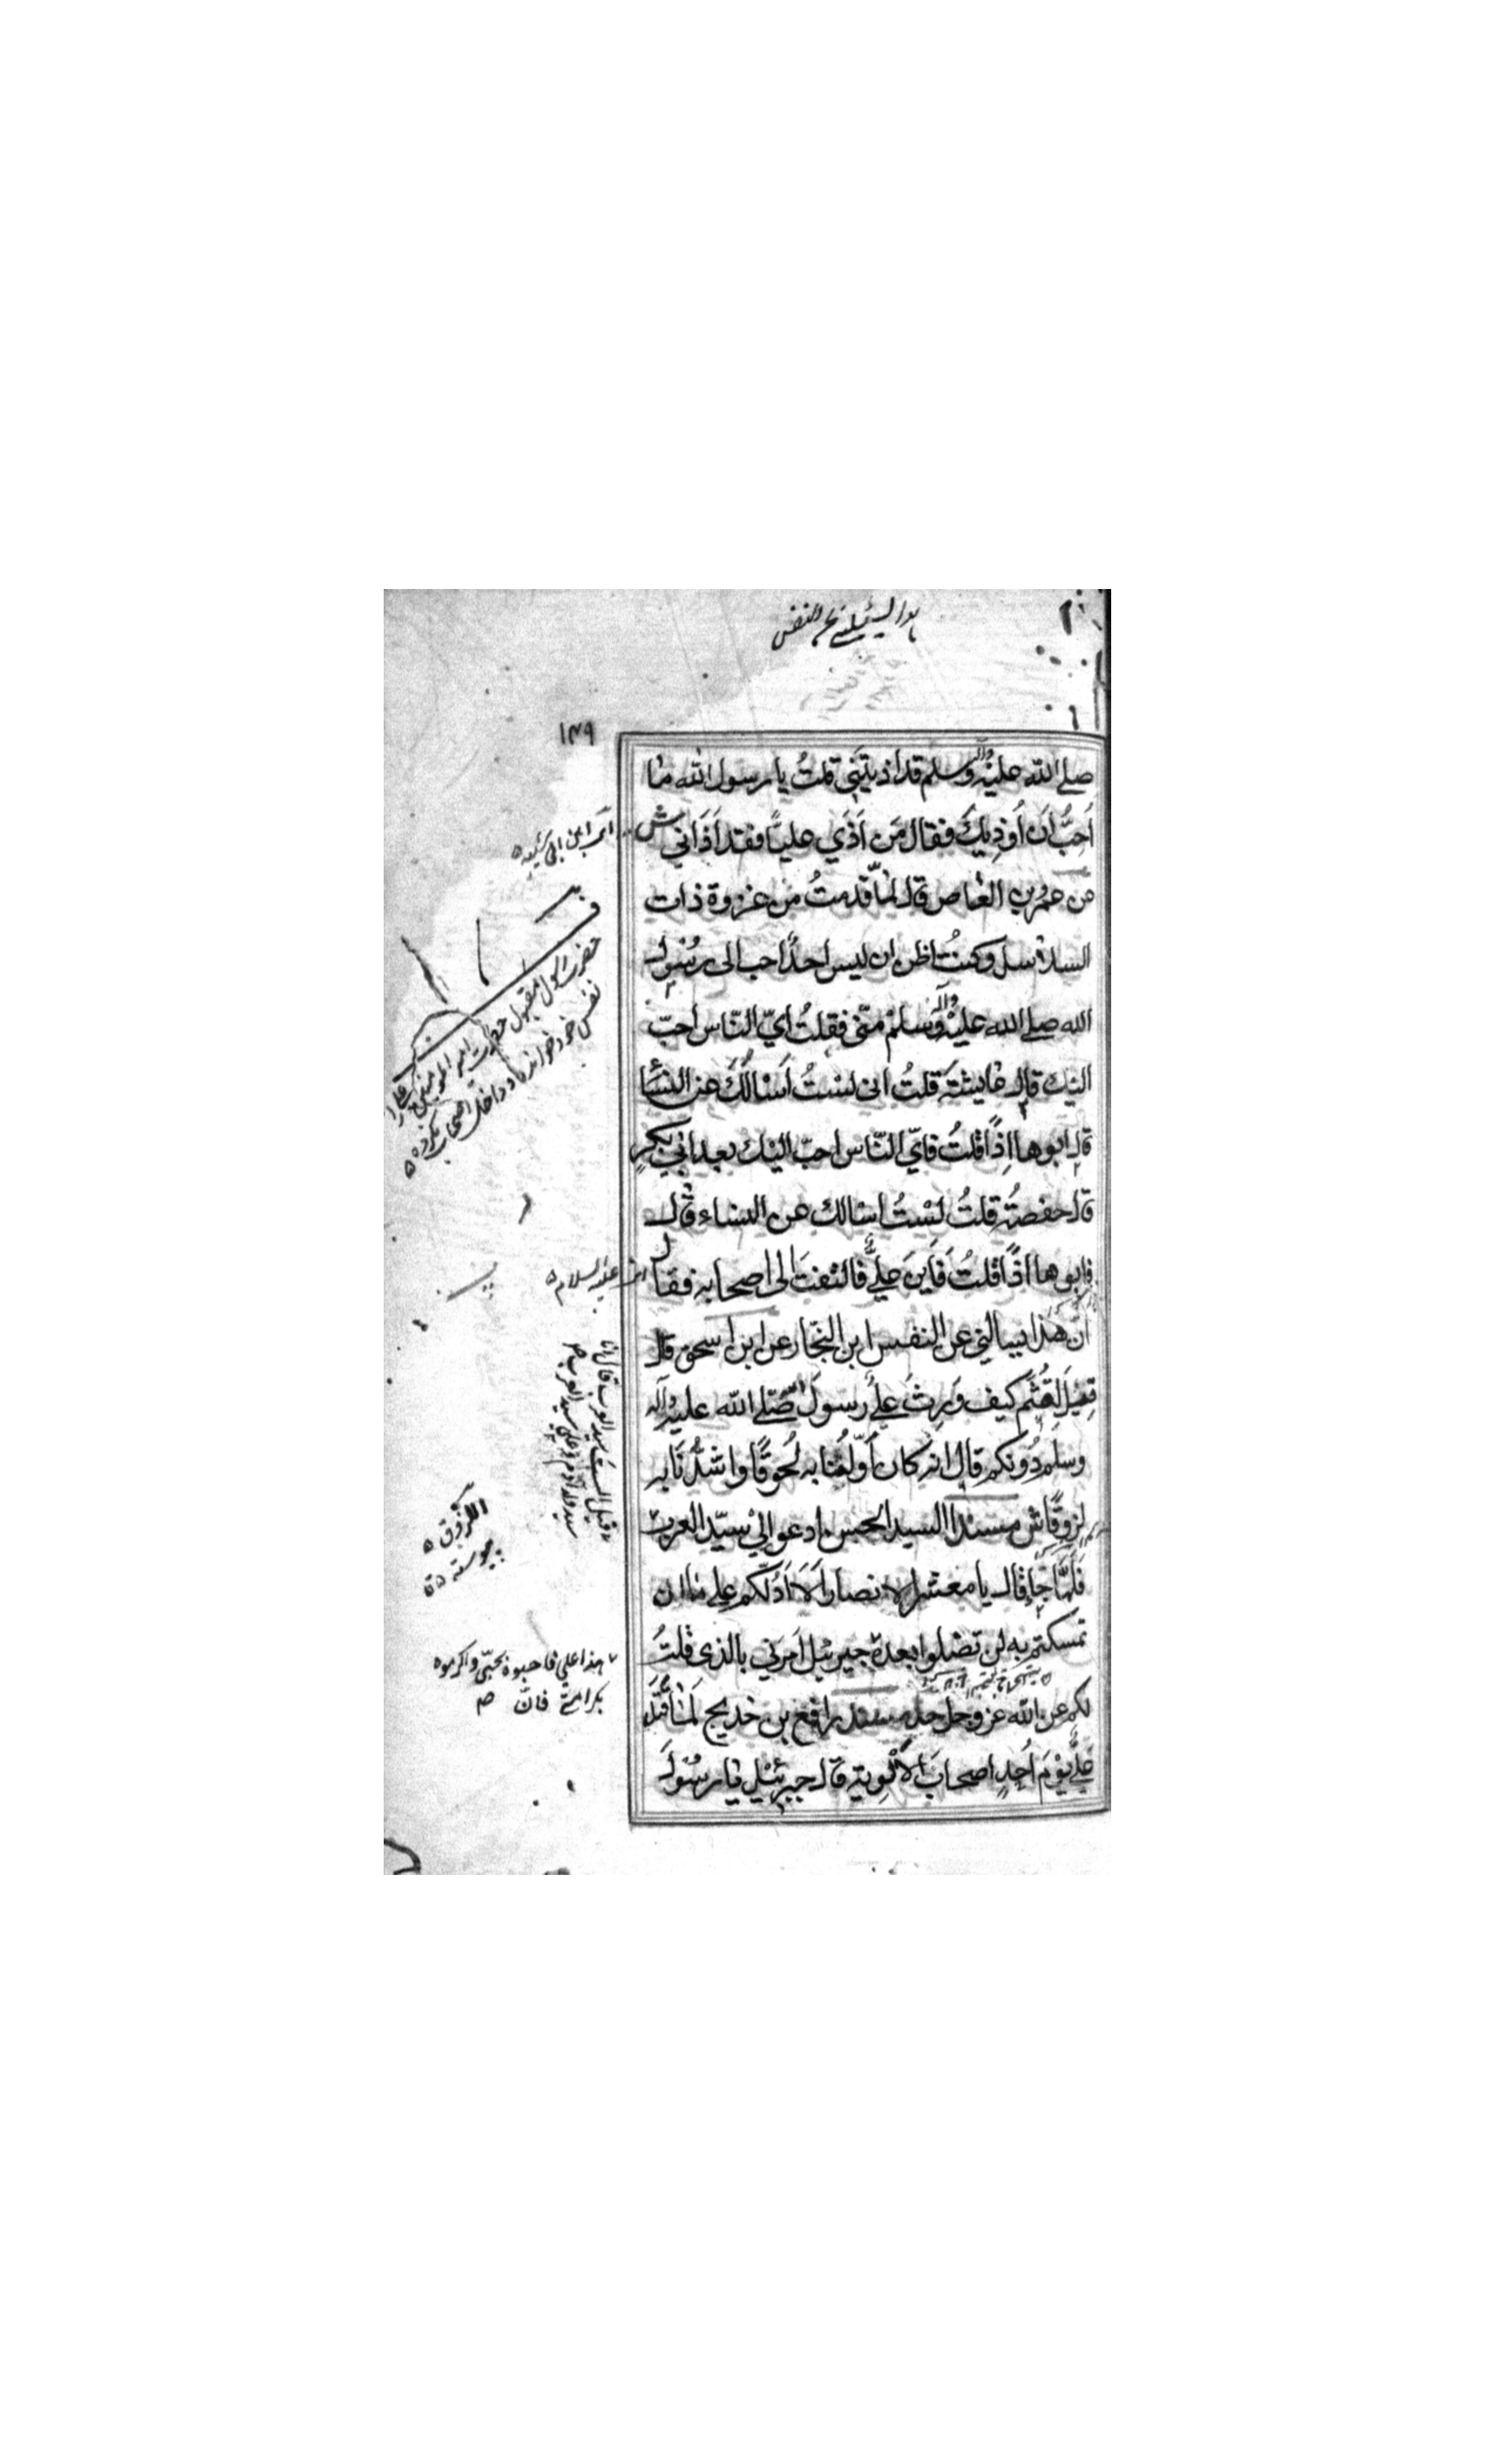 ١٣٩
صلى الله عليه وآله وسلم قد اذيتني قلتُ يا رسول الله ما
اُحِبُّ اَن اُوذِيكَ فقال مَن اَذَي عليًّا فقد اَذَاني ش
عن عمرو بن العاص قال لمّا قدمتُ من غزوة ذات
السلاسل وكنتُ اظن ان ليس احدٌ احب الى رسُول
الله صلى الله عليه وآله وسلم منّي فقلتُ ايّ النّاس احبّ
اليك قال عايشة قلتُ اني لستُ اَسْالُكَ عن النسَّا
قال ابوها اِذًا قلتُ فايّ النّاس احبّ اليك بعد ابي بكرٍ
قال حفصةُ قلتُ لسْتُ اسالك عن النساء قال
فابوها اذًا قلتُ فَاَينَ عليٌّ فالتفتَ الى اصحابه فقال
انّ هذا يسالني عن النفس ابن النجّار عن ابن اسحق قال
قِيلَ لقُثَم كيف وَرِثَ عليٌّ رسولَ الله صلّى الله عليه وآله
وسلم دُونكم قال انه كان اَوّلُنا به لُحوقًا واشدُّنَا به
لزوقًا ش مسندا السيد الحسن ادعوا لي سيّد العرب
فلمَّا جَا قال يا معشر الانصار اَلَا اَدُلُّكم على ما ان
تمسكتم به لن تضلوا بعده جبرئيل امرني بالذي قلتُ
لكم عن الله عز وجل مسند رافع بن خديج لمّا قتَلَ
عليٌّ يَوْمَ اُحدٍ اصحابَ الاَلْوِية قال جبرئيل يا رسُولَ
عليه السلام
قيل الست سيد العرب قال انا
سيد ولد آدم وعلي سيد العرب
اللزوق
پيوسته
هذا علي فاحبوه بحبّي واكرموه
بكرامتي فانّ